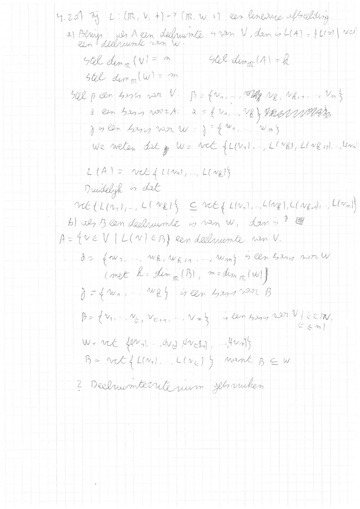 4.201 zij L: (ℝ, V, +) → (ℝ, W, +) een lineaire afbeelding
a) Bewijs als A een deelruimte is van V, dan is L(A) = {L(v) | v∈A}
een deelruimte van W.
Stel dim_ℝ(V) = n Stel dim_ℝ(A) = k
Stel dim_ℝ(W) = m
Stel β een basis voor V. β = {v1, ..., vk, ..., vn}
een basis voor A. = {v1, ..., vk}
γ is een basis voor W = γ = {w1, ... wm}
We weten dat W = vct {L(v1), ..., L(vk), L(vk+1), ...
L(A) = vct {L(v1), ... L(vk)}
Duidelijk is dat
vct {L(v1), ..., L(vk)} ⊆ vct {L(v1), ..., L(vk), L(vk+1), ..., L(vn)}
b) als B een deelruimte is van W, dan is
A = {v ∈ V | L(v) ∈ B} een deelruimte van V.
γ = {w1, ..., wk, wk+1, ..., wm} is een basis voor W
(met k = dim_ℝ(B), m = dim_ℝ(W))
γ = {w1, ... wk} is een basis voor B
β = {v1, ... vc, vc+1, ..., vn} is een basis voor V (c ∈ ℕ,
c ≤ n)
W = vct
B = vct {L(v1), ..., L(vc)} want B ⊆ W
? Deelruimtecriterium gebruiken